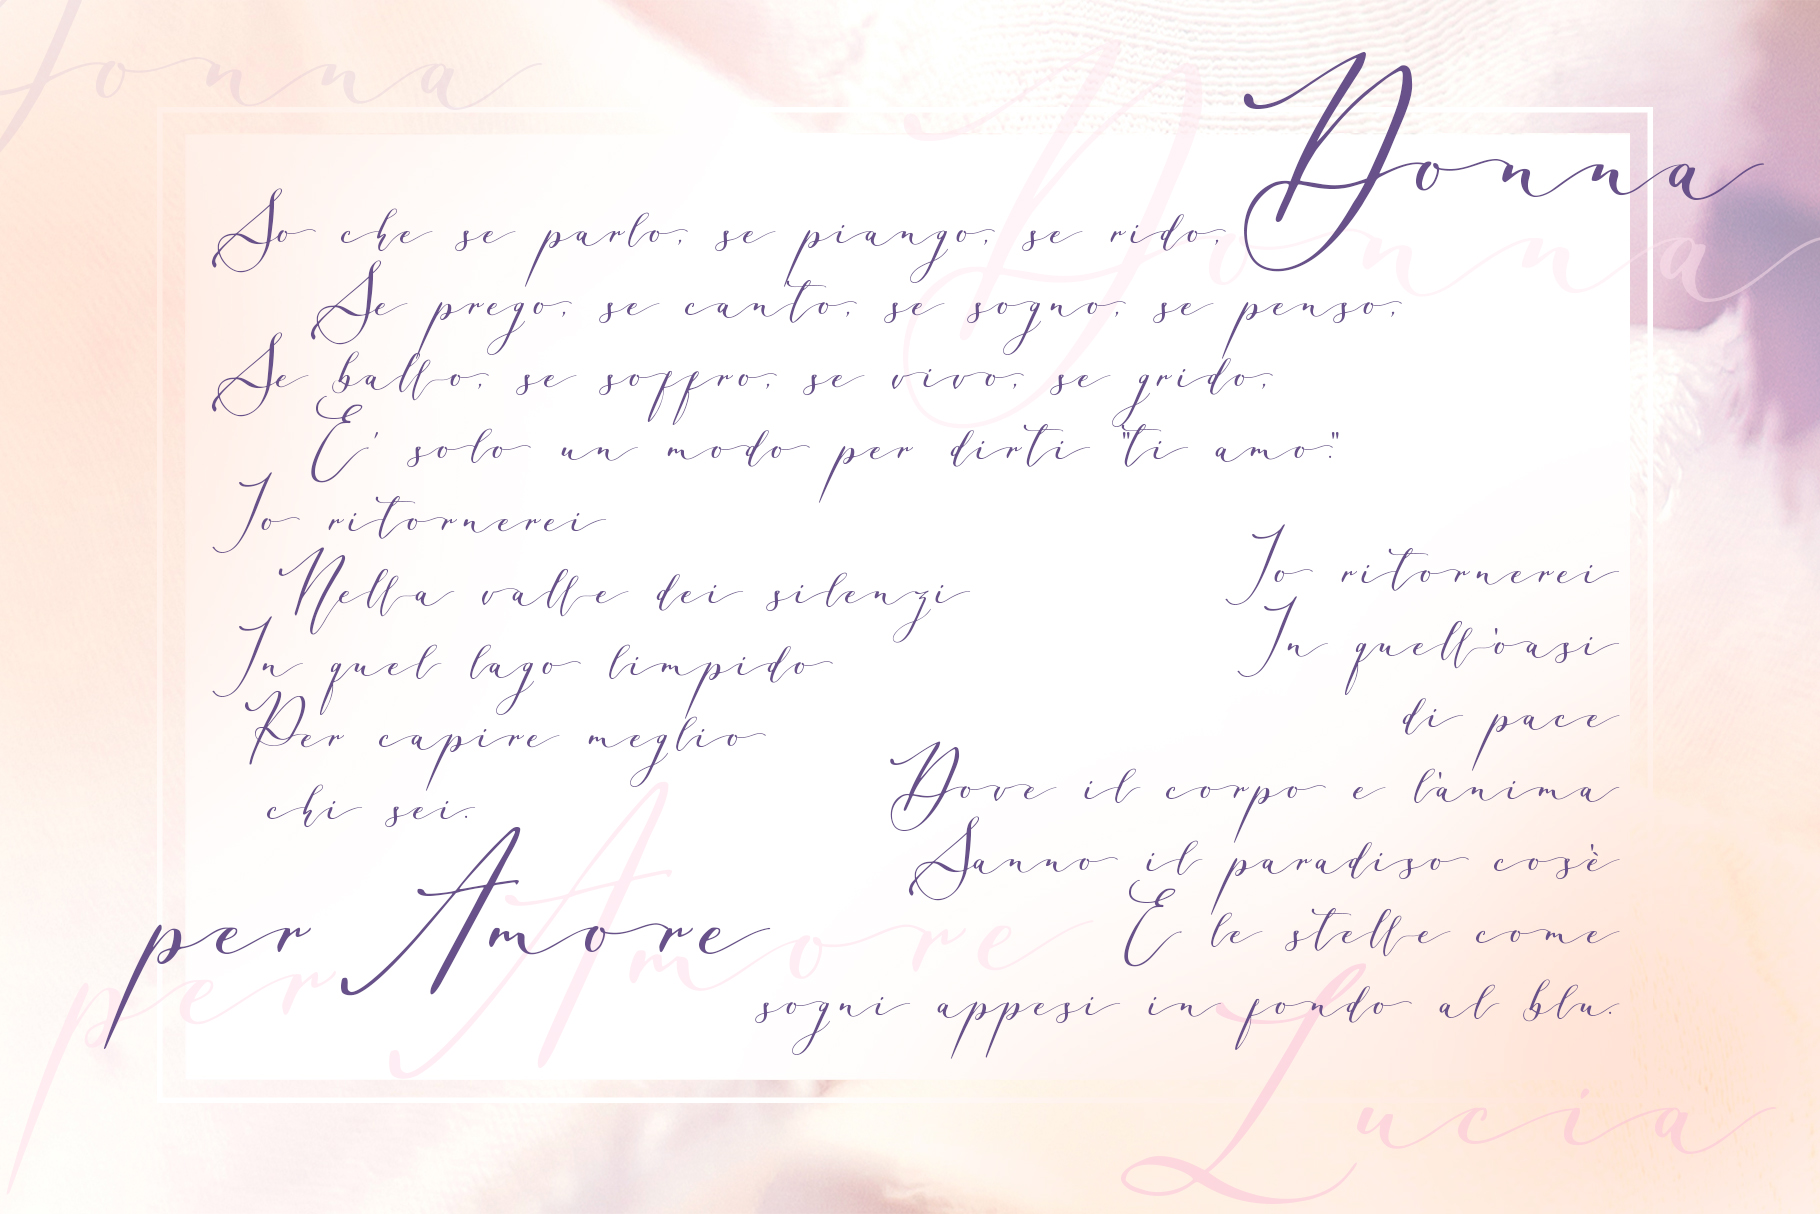 Donna
Donna
Donna
So che se parlo, se piango, se rido,
Se prego, se canto, se sogno, se penso,
Se ballo, se soffro, se vivo, se grido,
E' solo un modo per dirti "ti amo".
Io ritornerei
Nella valle dei silenzi
In quel lago limpido
Per capire meglio
chi sei.
per Amore
per Amore
Io ritornerei
In quell'oasi
di pace
Dove il corpo e l'anima
Sanno il paradiso cos'è
E le stelle come
sogni appesi in fondo al blu.
Lucia